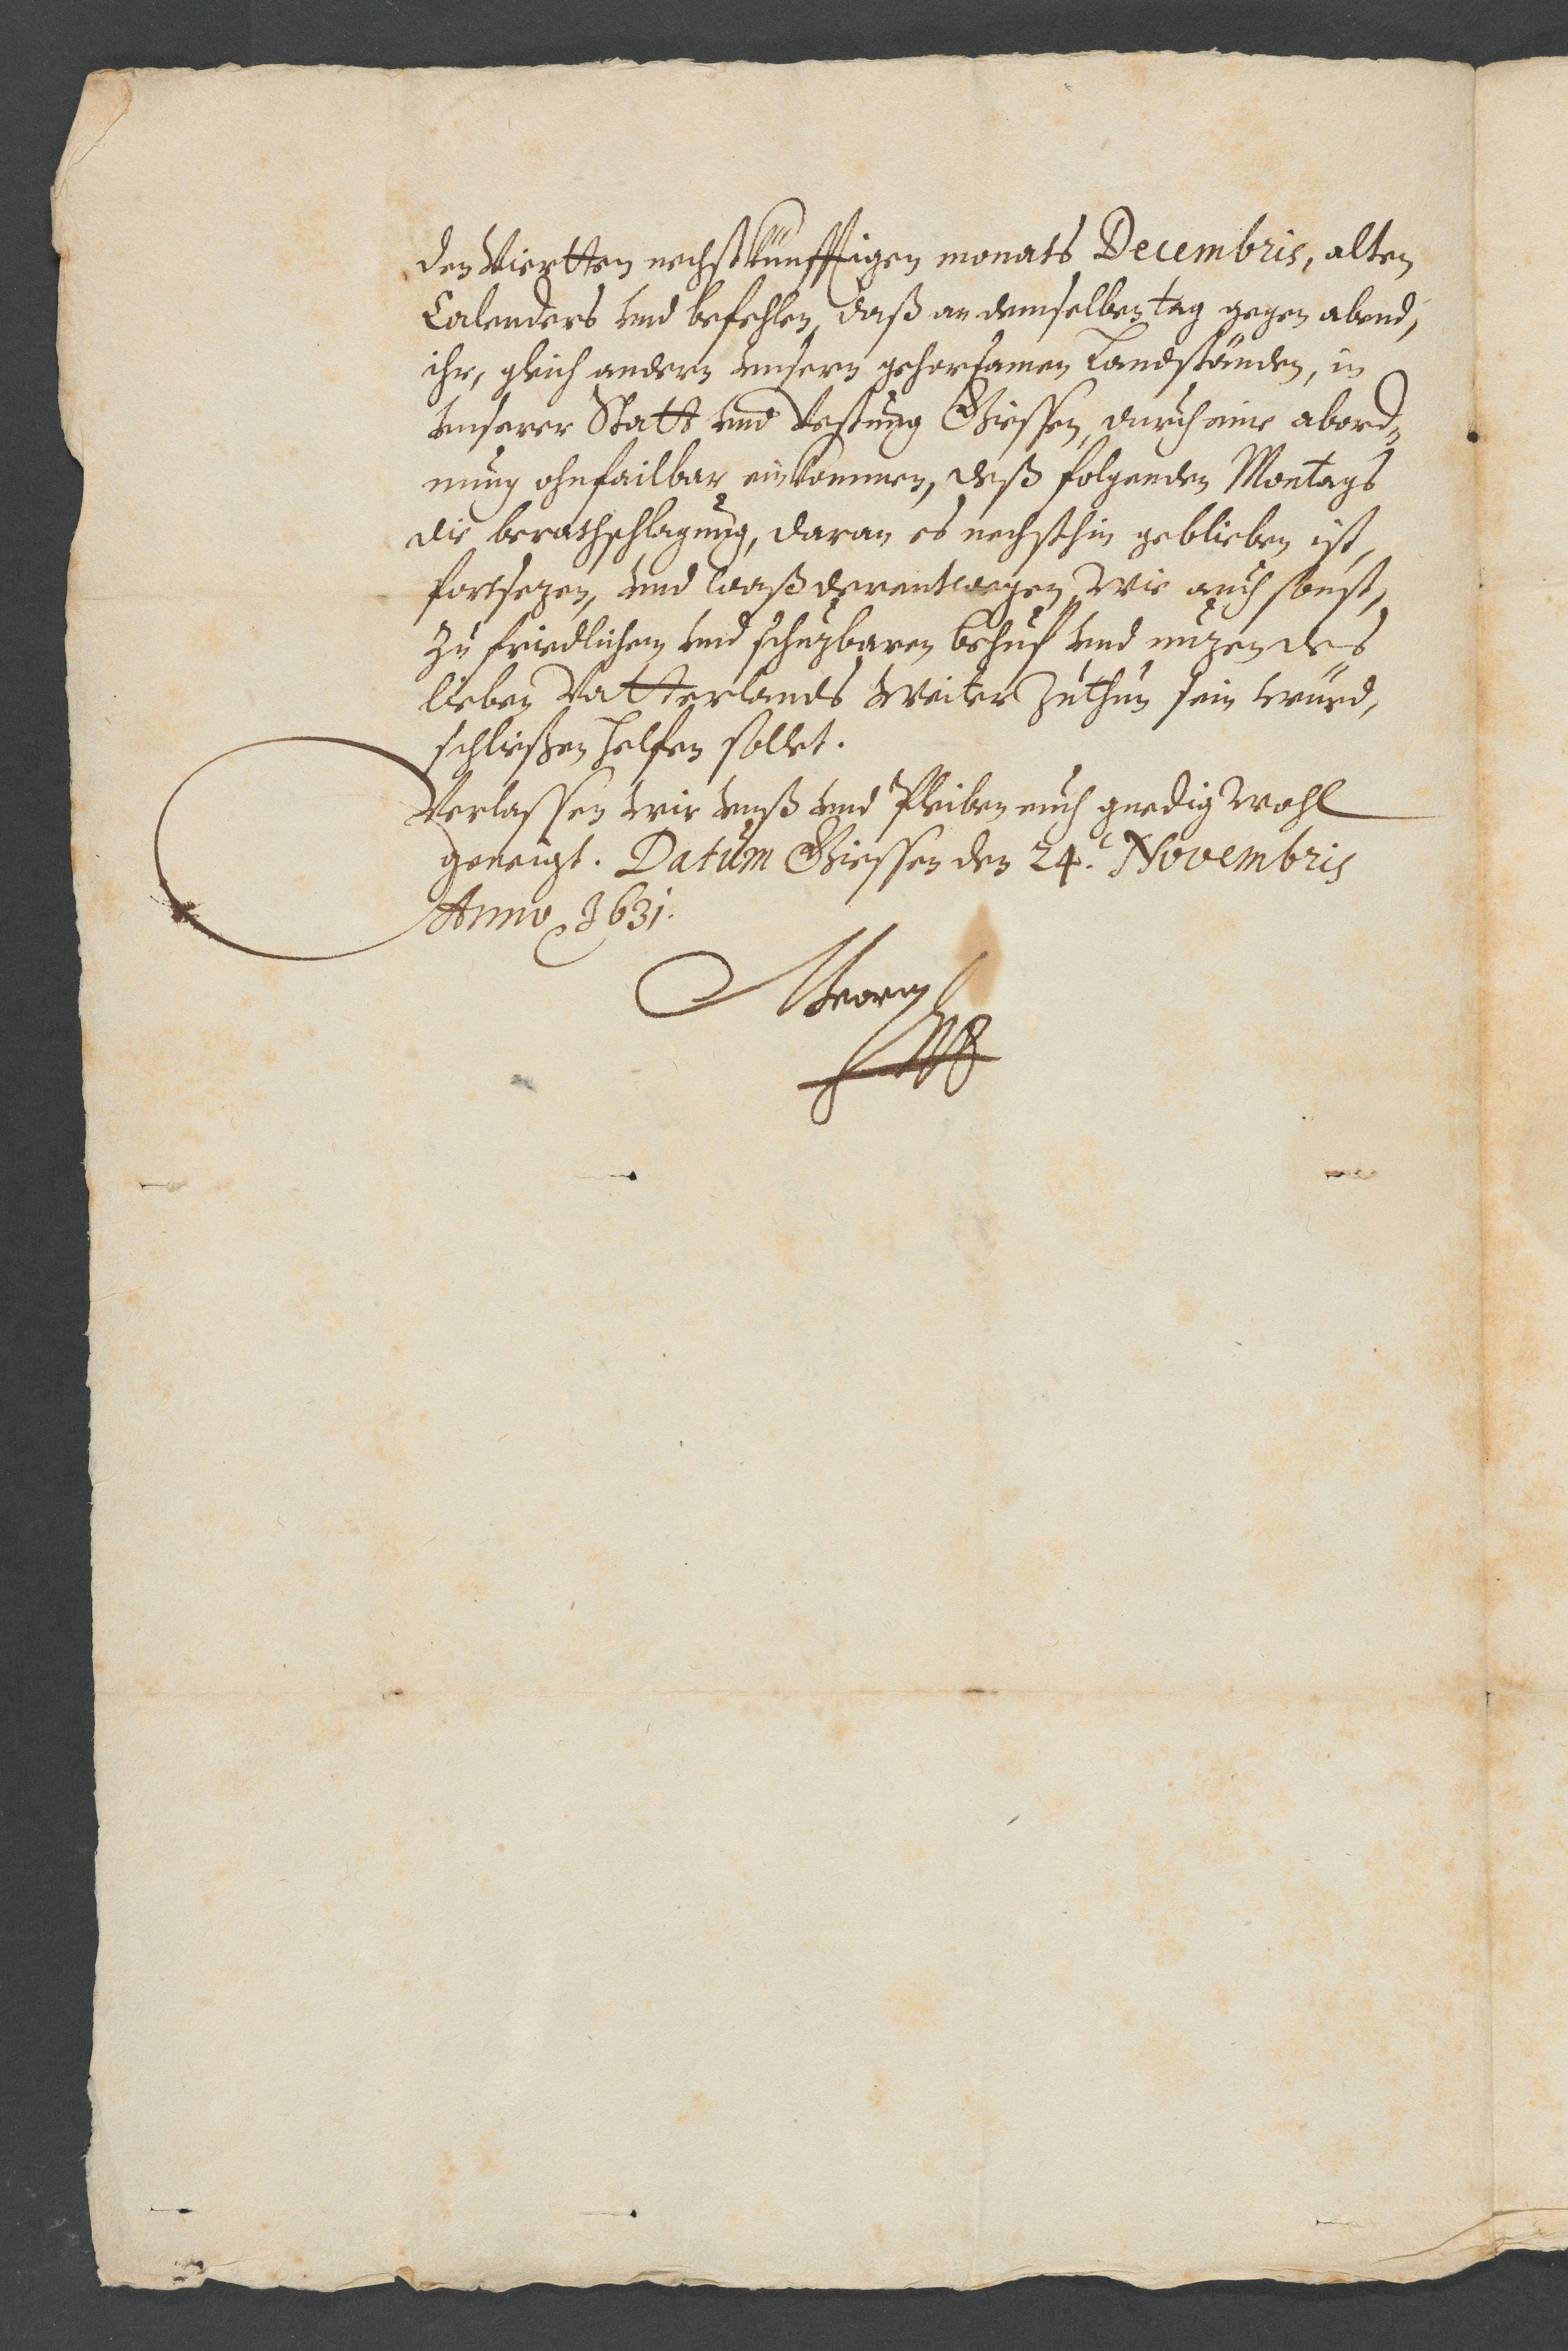 den Viertten nechstkünfftigen monats Decembris, alten
Calenders vnd befehlen, daß an demselben tag gegen abend,
ihr, gleich andern vnsern gehorsamen Landständen, in
vnserer Statt vnd Vestung Giessen, durch eine abord=
nung ohnfailbar einkommen, deß folgenden Montags
die berathschlagung, daran es nechsthin geblieben ist,
fortsezen, vnd waß derentwegen, Wie auch sonst,
zu friedlichem vnd schuzbaren behuf vnd nuzen des
lieben Vatterlands Weiter zuthun sein würd,
schließen helfen sollet.
Verlassen wir vnß vnd Pleiben euch gnedig Wohl
geneigt. Datum Giessen den 24. Novembris
Anno 1631.
Georg